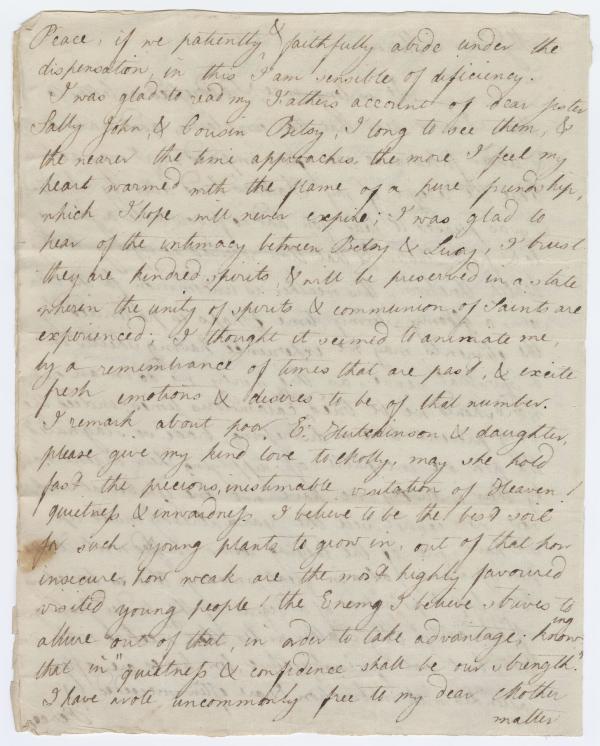 Peace, if we patiently & faithfully abide under the
dispensation, in this I am sensible of dificiency.
I was glad to read my Father's account of dear sister
Sally John, & Cousin Betsy, I long to see them, &
the nearer the time approaches the more I feel my
heart warmed with the flame of a pure friendship,
which I hope will never expire; I was glad to
hear of the intimacy between Betsy & Lucy, I trust
they are kindred spirits, & will be preserved in a state
wherein the unity of spirits & communion of Saints are
experienced; I thought it seemed to animate me,
by a remembrance of times that are past, & excite
fresh emotions & desires to be of that number.
I remark about poor E. Hutchinson & daughter,
please give my kind love to Molly, may she hold
fast the precious, inestimable visitation of Heaven!
quietness & inwardness I believe to be the best soil
for such young plants to grow in, out of that how
insecure, how weak are the most highly favoured
visited young people! the Enemy I believe strives to
allure out of that, in order to take advantage; knowing
that in "quietness & confidence shall be our strength."
I have wrote uncommonly free to my dear Mother
matter